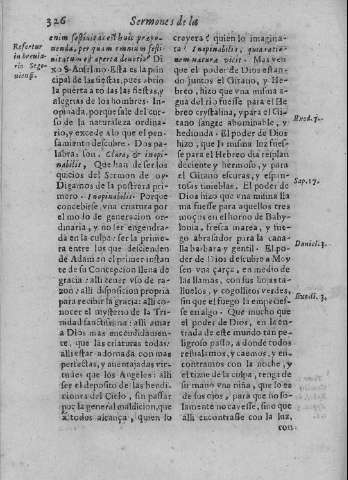 326 Sermones de la
Refertur
in brevia-
rio Sego-
viensi.
enim festivitati est huic præpo-
nenda, per quam omnium festi-
nitatum est aperta devotio? Di
xo S. Anselmo. Esta es la prin
cipal de las fiestas, pues abrio
la puerta a todas las fiestas, y
alegrias de los hombres. Ino-
pinada, porque sale del cur-
so de la naturaleza ordina-
rio, y excede a lo que el pen-
samiento descubre. Dos pa-
labras son, Clara, & inopi-
nabilis, Que han de ser los
quicios del Sermon de oy.
Digamos de la postrera pri-
mero. Inopinabilis. Porque
concebirse vna criatura por
el modo de generacion or-
dinaria, y no ser engendra-
da en la culpa: ser la prime-
ra entre los que descienden
de Adan en el primer instan
te de su Concepcion llena de
gracia: alli tener vso de ra-
zon: alli disposicion propria
para recibir la gracia: alli co-
nocer el mysterio de la Tri-
nidad santissima: alli amar
a Dios mas encendidamen-
te, que las criaturas todas:
alli estar adornada con mas
perfectas, y aventajadas vir-
tudes que los Angeles: alli
ser el deposito de las bendi-
ciones del Cielo, sin passar
por la general maldicion, que
a todos alcança, quien lo
creyera? quien lo imagina-
ra? Inopinabilis, quia ratio-
nem naturæ vicit. Mas ven
que el poder de Dios estan-
do juntos el Gitano, y He-
breo, hizo que vna misma a
gua del rio fuesse para el He
breo crystalina, y para el Gi
tano sangre abominable, y
hedionda. El poder de Dios
hizo, que la misma luz fues
se para el Hebreo dia resplan
deciente y hermoso, y para
el Gitano escuras, y espan-
tosas tinieblas. El poder de
Dios hizo que vna misma lla
ma fuesse para aquellos tres
moços en el horno de Baby-
lonia, fresca marea, y fue-
go abrasador para la cana-
lla barbara y gentil. El po-
der de Dios descubre a Moy
sen vna çarça, en medio de
las llamas, con sus hojas ta-
lluelos, y cogollitos verdes,
sin que el fuego la empecies-
se en algo. Que mucho que
el poder de Dios, en la en-
trada de este mundo tan pe-
ligroso passo, a donde todos
resbalamos, y caemos, y en-
contramos con la noche, y
el tizne de la culpa, tenga de
su mano vna niña, que lo es
de sus ojos, para que no so-
lamente no cayesse, sino que
alli encontrasse con la luz,
con
Exod. 7.
Sap. 17.
Daniel. 3.
Exodi. 3.